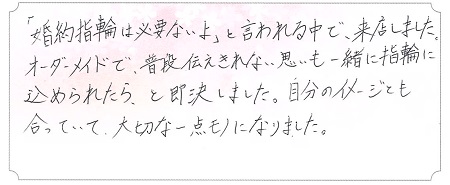 「婚約指輪は必要ないよ」と言われる中で、来店しました。
オーダーメイドで、普段伝えきれない思いも一緒に指輪に
込められたら、と即決しました。自分のイメージとも
合っていて、大切な一点モノになりました。